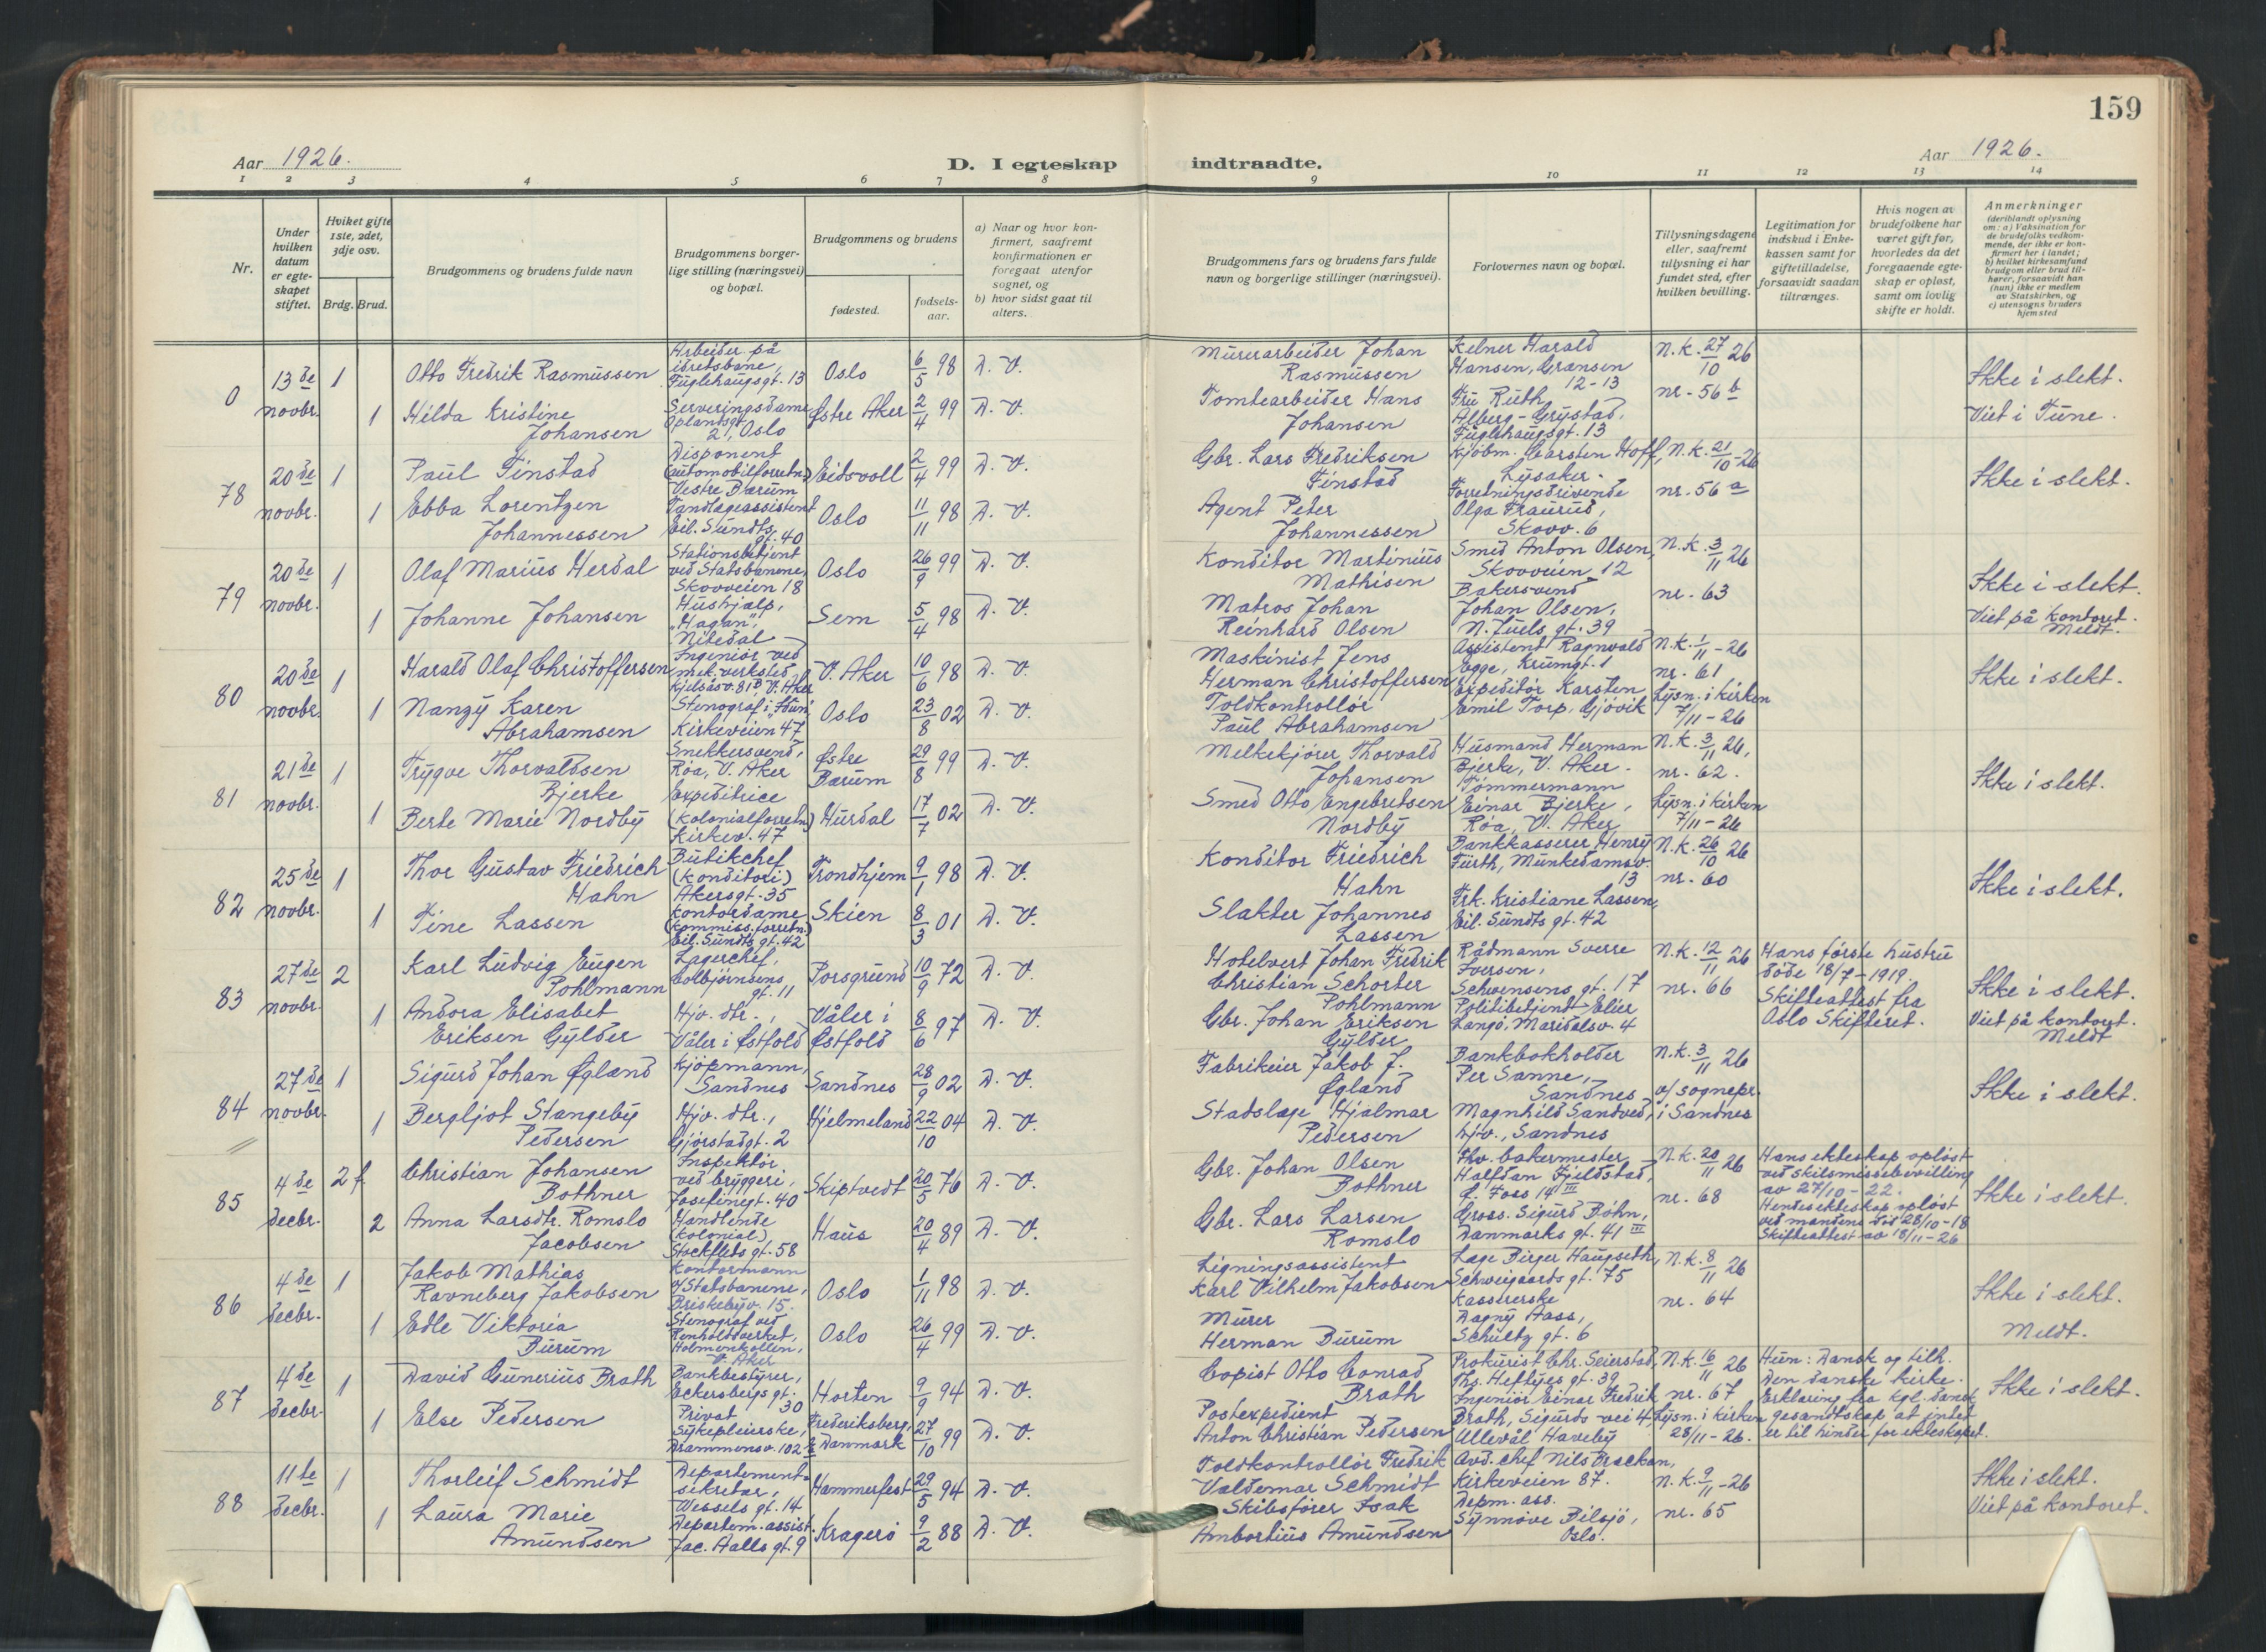 159
Aar 1926.
D. I egteskap indtraadte.
Aar 1926.
1 2 3 4 5 6 7 8 9 10 11 12 13 14
Nr.
Under hvilken datum er egteskapet stiftet.
Hviket gifte 1ste, 2det, 3dje osv.
Brdg. Brud.
Brudgommens og brudens fulde navn
Brudgommens borgerlige stilling (næringsvei) og bopæl.
Brudgommens og brudens
fødested.
fødsels-aar.
a) Naar og hvor konfirmert, saafremt konfirmationen er foregaat utenfor sognet, og
b) hvor sidst gaat til alters.
Brudgommens fars og brudens fars fulde navn og borgerlige stillinger (næringsvei).
Forlovernes navn og bopæl.
Tillysningsdagene eller, saafremt tillysning ei har fundet sted, efter hvilken bevilling.
Legitimation for indskud i Enkekassen samt for giftetilladelse, forsaavidt saadan tiltrænges.
Hvis nogen av brudefolkene har været gift før, hvorledes da det foregaaende egteskap er opløst, samt om lovlig skifte er holdt.
Anmerkninger
(deriblandt oplysning om: a) Vaksination for de brudefolks vedkommende, der ikke er konfirmert her i landet; b) hvilket kirkesamfund brudgom eller brud tilhører, forsaavidt han (hun) ikke er medlem av Statskirken, og c) utensogns bruders hjemsted
0 13de novbr. 1 Otto Fredrik Rasmussen Arbeider på idretsbane, Fuglehaugsgt. 13 Oslo 6/5 98 D. V. Murerarbeider Johan Rasmussen Kelner Harald Hansen, Grænsen 12-13 N.k. 27/10 26 Ikke i slekt.
1 Hilda Kristine Johansen Serveringsdame Oplandsgt. 2, Oslo Østre Aker 2/4 99 D. V. Tomtearbeider Hans Johansen Fru Ruth Alberg-Grystad, Fuglehaugsgt. 13 nr. 56 b Viet i Tune.
78 20de novbr. 1 Paul Finstad Disponent (automobilforretn.) Vestre Bærum Eidsvoll 2/4 99 D. V. Gbr. Lars Fredriksen Finstad Kjøbm. Carsten Hoff, Lysaker. N.k. 21/10-26 Ikke i slekt.
1 Ebba Lorentzen Johannessen Tandlægeassistent Eil. Sundts gt. 40 Oslo 11/11 98 D. V. Agent Peter Johannessen Forretningsdrivende Olga Traurud, Skovv. 6 nr. 56 a
79 20de novbr. 1 Olaf Marius Herdal Stationsbetjent ved Statsbanene, Skovveien 18 Oslo 26/9 99 D. V. Konditor Martinius Mathisen Smed Anton Olsen, Skovveien 12 N.k. 3/11 26 Ikke i slekt.
1 Johanne Johansen Hushjælp, "Hagan", Nitedal Sem 5/4 98 D. V. Matros Johan Reinhard Olsen Bakersvend Johan Olsen, N. Juels gt. 39 nr. 63 Viet på kontoret. Meldt.
80 20de novbr. 1 Harald Olaf Christoffersen Ingeniør ved mek. verksted, Kjelsåsv. 81B V. Aker V. Aker 10/6 98 D. V. Maskinist Jens Herman Christoffersen Assistent Ragnvald Egge, Krumgt. 1 N.k. 1/11-26 nr. 61 Ikke i slekt.
1 Nanzy Karen Abrahamsen Stenograf i "Idun" Kirkeveien 47 Oslo 23/8 02 D. V. Toldkontrollør Paul Abrahamsen Expeditør Karsten Emil Torp, Gjøvik Lysn. i kirken 7/11-26
81 21de novbr. 1 Trygve Thorvaldsen Bjerke Snekkersvend, Røa, V. Aker Østre Bærum 29/8 99 D. V. Melkekjører Thorvald Johansen Husmand Herman Bjerke, V. Aker. N.k. 3/11 26, nr. 62. Ikke i slekt.
1 Berte Marie Nordby Expeditrice (kolonialforretn.) Kirkev. 47 Hurdal 17/7 02 D. V. Smed Otto Engebretsen Nordby Tømmermann Einar Bjerke, Røa, V. Aker Lysn. i kirken 7/11-26
82 25de novbr. 1 Thor Gustav Friedrich Hahn Butikchef (konditori) Akersgt. 35 Trondhjem 9/1 98 D. V. Konditor Friedrich Hahn Bankkasserer Henry Fürth, Munkedamsv. 13 N.k. 26/10 26 nr. 60 Ikke i slekt.
1 Tine Lassen Kontordame (kommiss. forretn.) Eil. Sundts gt. 42 Skien 8/3 01 D. V. Slakter Johannes Lassen Frk. Kristiane Lassen, Eil. Sundts gt. 42
83 27de novbr. 2 Karl Ludvig Eugen Pohlmann Lagerchef, Colbjørnsens gt. 11 Porsgrund 10/9 72 D. V. Hotelvert Johan Fredrik Christian Schorter Pohlmann Rådmann Sverre Iversen, Schwensens gt. 17 N.k. 12/11 26 nr. 66 Hans første hustru døde 18/7-1919. Skifteattest fra Oslo Skifteret. Ikke i slekt.
1 Andora Elisabet Eriksen Gylder Hjv. dtr., Våler i Østfold Våler i Østfold 8/6 97 D. V. Gbr. Johan Eriksen Gylder Politibetjent Elier Langø, Maridalsv. 4 Viet på kontoret. Meldt
84 27de novbr. 1 Sigurd Johan Øgland Kjøpmann, Sandnes Sandnes 28/9 02 D. V. Fabrikeier Jakob J. Øgland Bankbokholder Per Sanne, Sandnes N.k. 3/11 26 v/ sognepr. i Sandnes Ikke i slekt.
1 Bergljot Stangeby Pedersen Hjv. dtr., Gjørstadgt. 2 Hjelmeland 22/10 04 D. V. Stadslæge Hjalmar Pedersen Magnhild Sandved, hjv., Sandnes
85 4de decbr. 2 f. Christian Johansen Bothner Inspektør ved bryggeri, Josefinegt. 40 Skiptvedt 20/5 76 D. V. Gbr. Johan Olsen Bothner Fhv. bakermester Halfdan Fjeldstad, f. Foss 14 III N.k. 20/11 26 nr. 68 Hans ekteskap opløst ved skilsmissebevilling av 27/10-22. Ikke i slekt.
2 Anna Larsdtr. Romslo Jacobsen Handlende (kolonial) Stockfleths gt. 58 Haus 20/4 89 D. V. Gbr. Lars Larsen Romslo Gross. Sigurd Bøhn, Danmarks gt. 41 III Hendes ekteskap opløst ved mandens død 28/10-18 Skifteattest av 18/11-26
86 4de decbr. 1 Jakob Mathias Ravneberg Jakobsen Kontormann v/ Statsbanene, Briskebyv. 15. Oslo 1/11 98 D. V. Ligningsassistent Karl Vilhelm Jakobsen Læge Birger Haugseth, Schweigaards gt. 75 N.k. 8/11 26 Ikke i slekt.
1 Edle Viktoria Burum Stenograf ved Renholdsverket, Holmenkollen, V. Aker Oslo 26/4 99 D. V. Murer Herman Burum Kassererske Dagny Aass, Schultz gt. 6 nr. 64 Meldt.
87 4de decbr. 1 David Gunerius Brath Bankbestyrer, Eckersbergs gt. 30 Horten 9/9 94 D. V. Copist Otto Conrad Brath Prokurist Chr. Seierstad, Ths. Heftyes gt. 39 N.k. 16/11 26 nr. 67 Hun: Dansk og tilh. Den danske kirke. Ikke i slekt.
1 Else Pedersen Privat sykepleierske, Drammensv. 102 Frederiksberg, Danmark 27/10 99 D. V. Postexpedient Anton Christian Pedersen Ingeniør Einar Fredrik Brath, Sigurds vei 4, Ullevål Haveby Lysn. i kirken 28/11-26. Erklæring fra kgl. dansk gesandtskap at intet er til hinder for ekteskapet.
88 11te decbr. 1 Thorleif Schmidt Departementssekretær, Wessels gt. 14 Hammerfest 29/5 94 D. V. Toldkontrollør Fredrik Valdemar Schmidt Avd. chef Nils Brackan, Kirkeveien 87. N.k. 9/11-26 Ikke i slekt.
1 Laura Marie Amundsen Departem. assist. Jac. Aalls gt. 9 Kragerø 9/2 88 D. V. Skibsfører Isak Ambortius Amundsen Depm. ass. Synnøve Bilsjø, Oslo. nr. 65 Viet på kontoret.